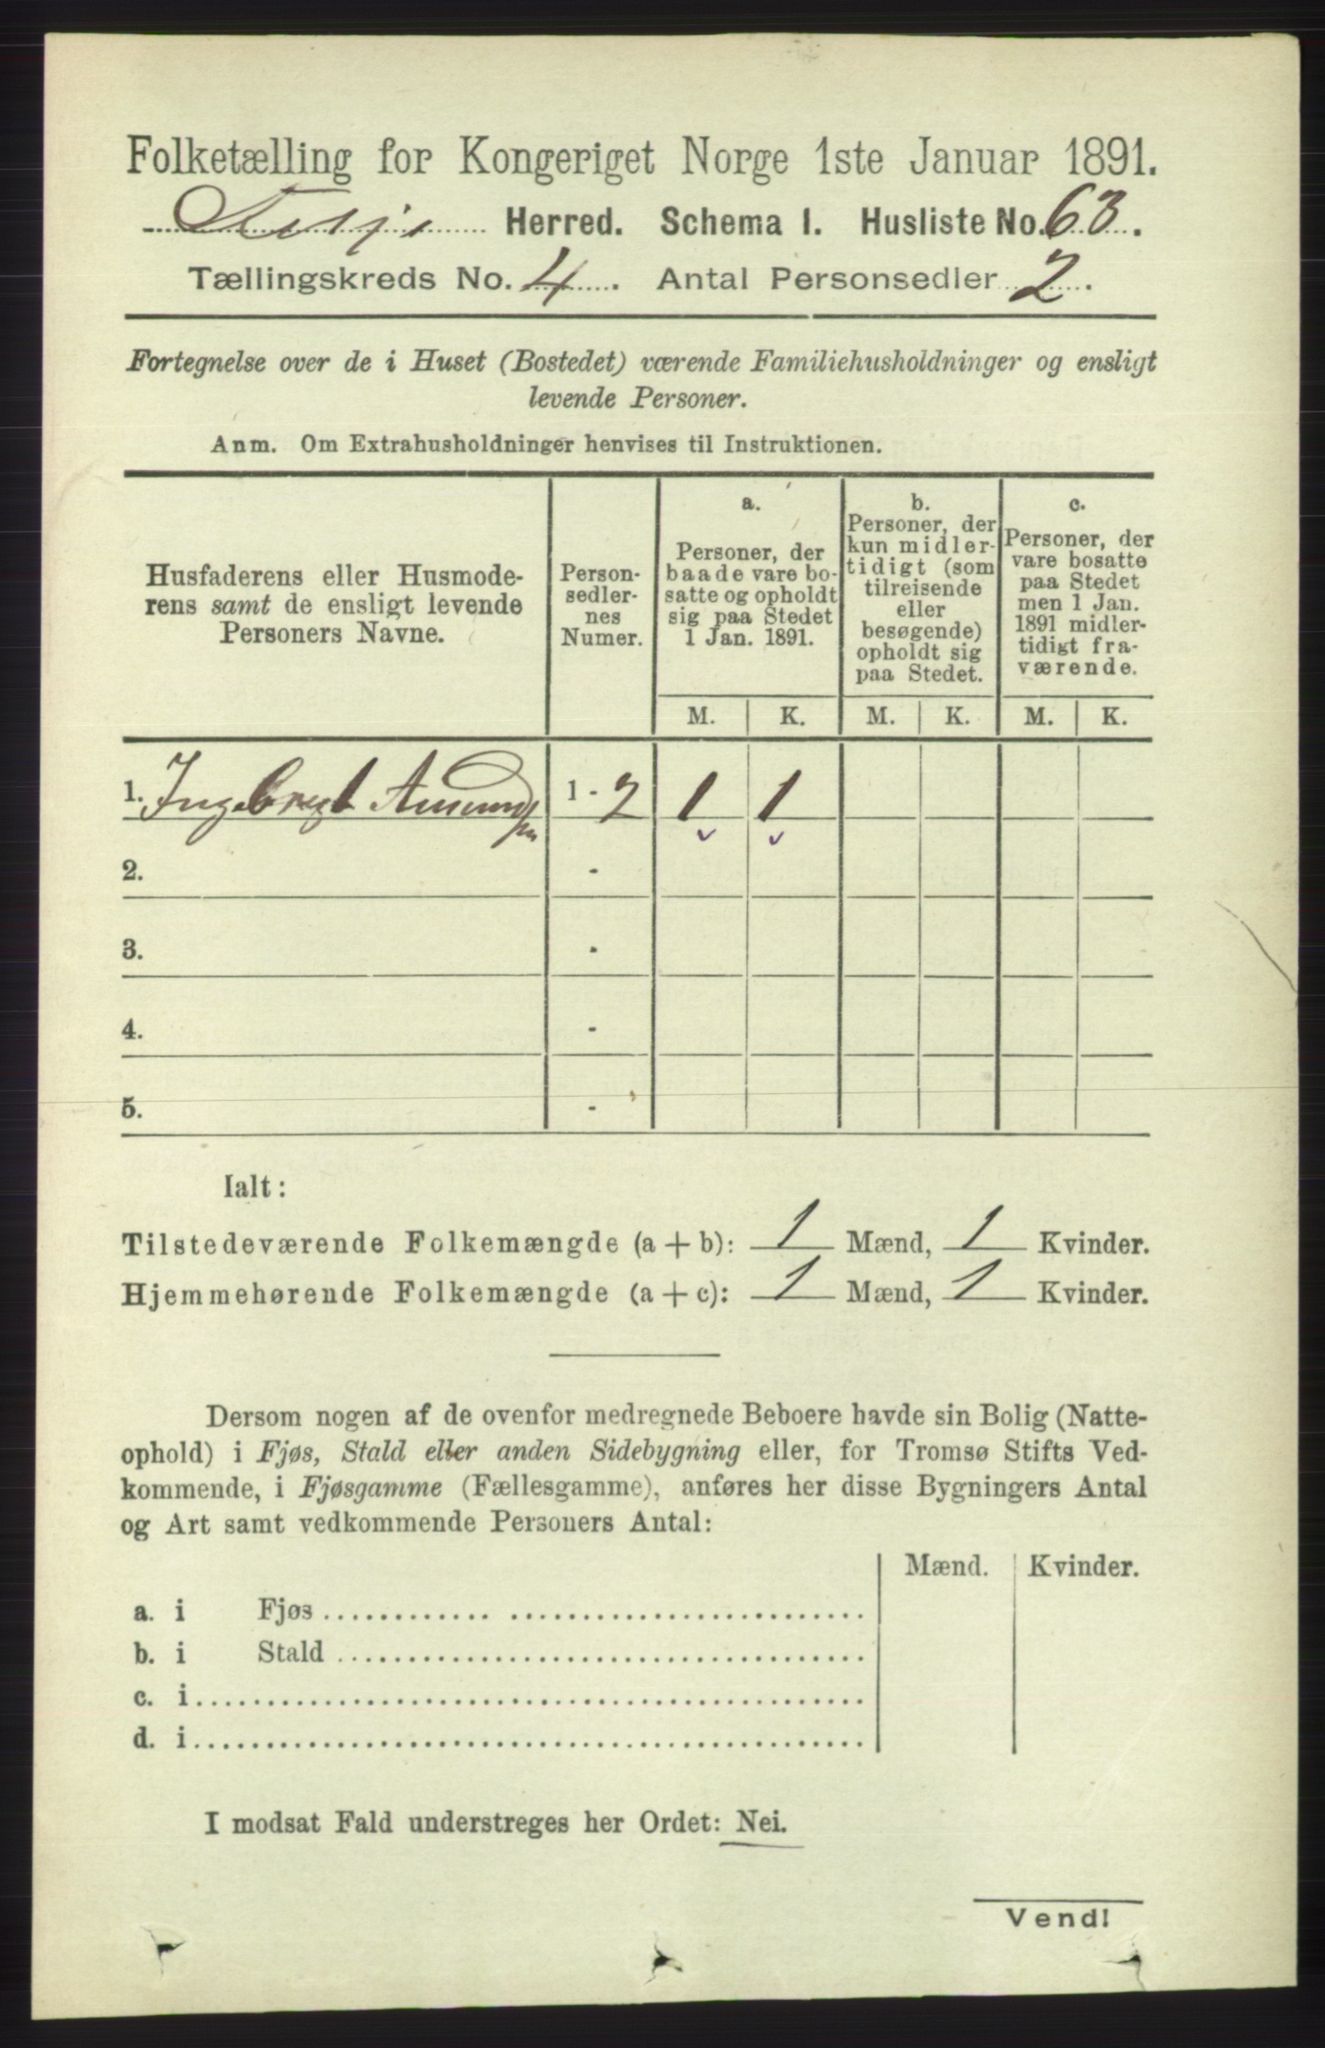 Folketælling for Kongeriget Norge 1ste Januar 1891.
Herred. Schema I. Husliste No. 63.
Tællingskreds No. 4. Antal Personsedler 2.
Fortegnelse over de i Huset (Bostedet) værende Familiehusholdninger og ensligt
levende Personer.
Anm. Om Extrahusholdninger henvises til Instruktionen.
Husfaderens eller Husmode-
rens samt de ensligt levende
Personers Navne.
Person-
sedler-
nes
Numer.
a.
Personer, der
baade vare bo-
satte og opholdt
sig paa Stedet
1 Jan. 1891.
b.
Personer, der
kun midler-
tidigt (som
tilreisende
eller
besøgende)
opholdt sig
paa Stedet.
c.
Personer, der
vare bosatte
paa Stedet
men 1 Jan.
1891 midler-
tidigt fra-
værende.
M. K. M. K. M. K.
1. Ingebregt Amund 1 - 2 1 1
2. -
3. -
4. -
5. -
Ialt:
Tilstedeværende Folkemængde (a + b): 1 Mænd, 1 Kvinder.
Hjemmehørende Folkemængde (a + c): 1 Mænd, 1 Kvinder.
Dersom nogen af de ovenfor medregnede Beboere havde sin Bolig (Natte-
ophold) i Fjøs, Stald eller anden Sidebygning eller, for Tromsø Stifts Ved-
kommende, i Fjøsgamme (Fællesgamme), anføres her disse Bygningers Antal
og Art samt vedkommende Personers Antal:
Mænd. Kvinder.
a. i Fjøs
b. i Stald
c. i
d. i
I modsat Fald understreges her Ordet: Nei.
Vend!